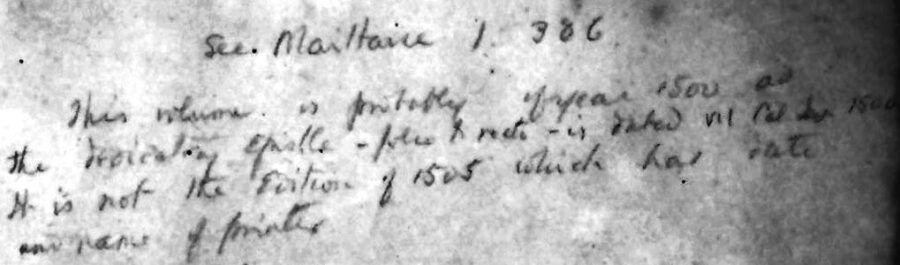 See. Maittaire 1. 386
This volume is probably of year 1500 as
the dedicatory Epistle - folio recto - is dated VII Kal 1500
It is not the Edition of 1505 which has date
and name of printer